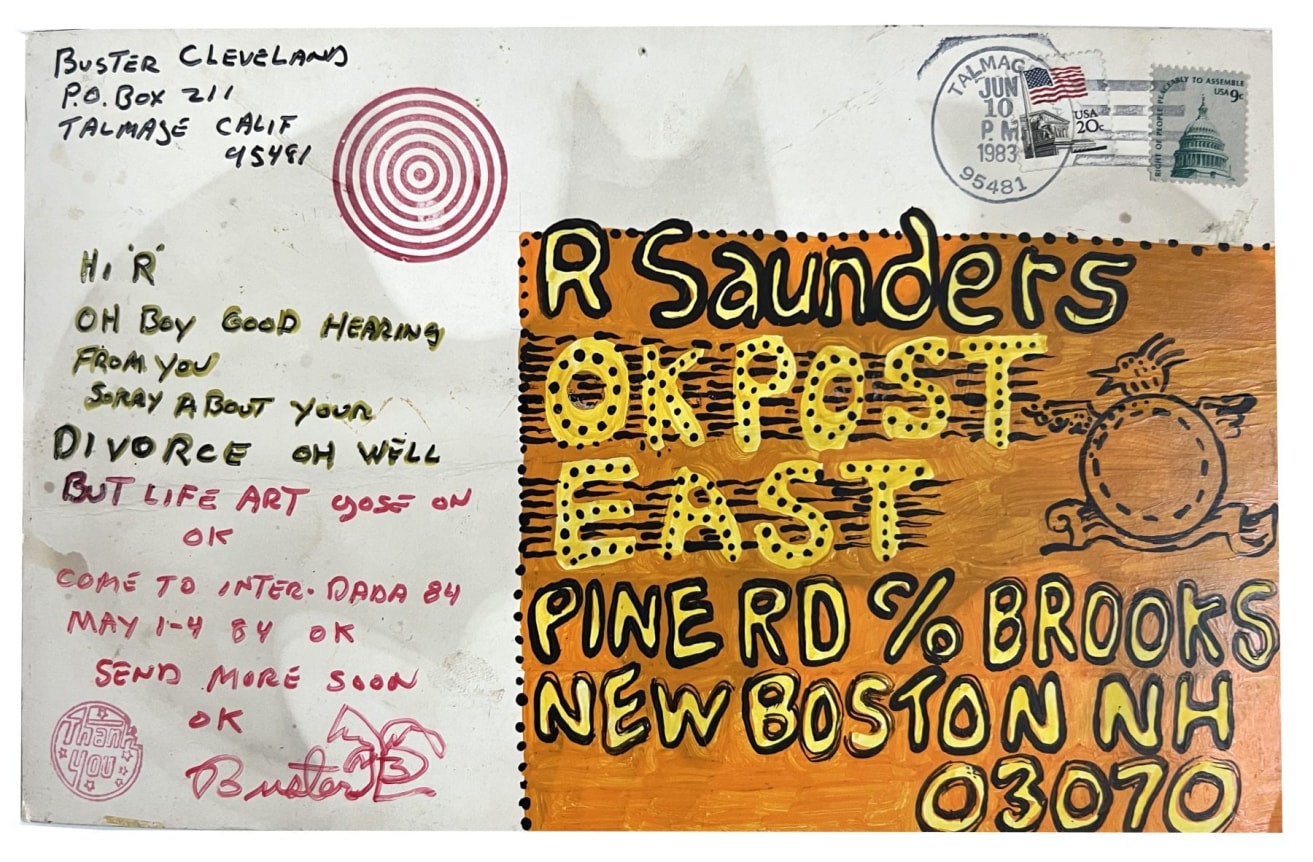 BUSTER CLEVELAND
P.O. BOX 211
TALMAGE CALIF
95481
TALMAGE
JUN
10
P.M
1983
95481
USA
20c
RIGHT OF PEOPLE PEACEABLY TO ASSEMBLE
USA 9c
HI 'R'
OH BOY GOOD HEARING
FROM YOU
SORRY ABOUT YOUR
DIVORCE OH WELL
BUT LIFE ART GOSE ON
OK
COME TO INTER-DADA 84
MAY 1-4 84 OK
SEND MORE SOON
OK
Buster
Thank
You
R Saunders
OK POST
EAST
PINE RD % BROOKS
NEW BOSTON NH
03070